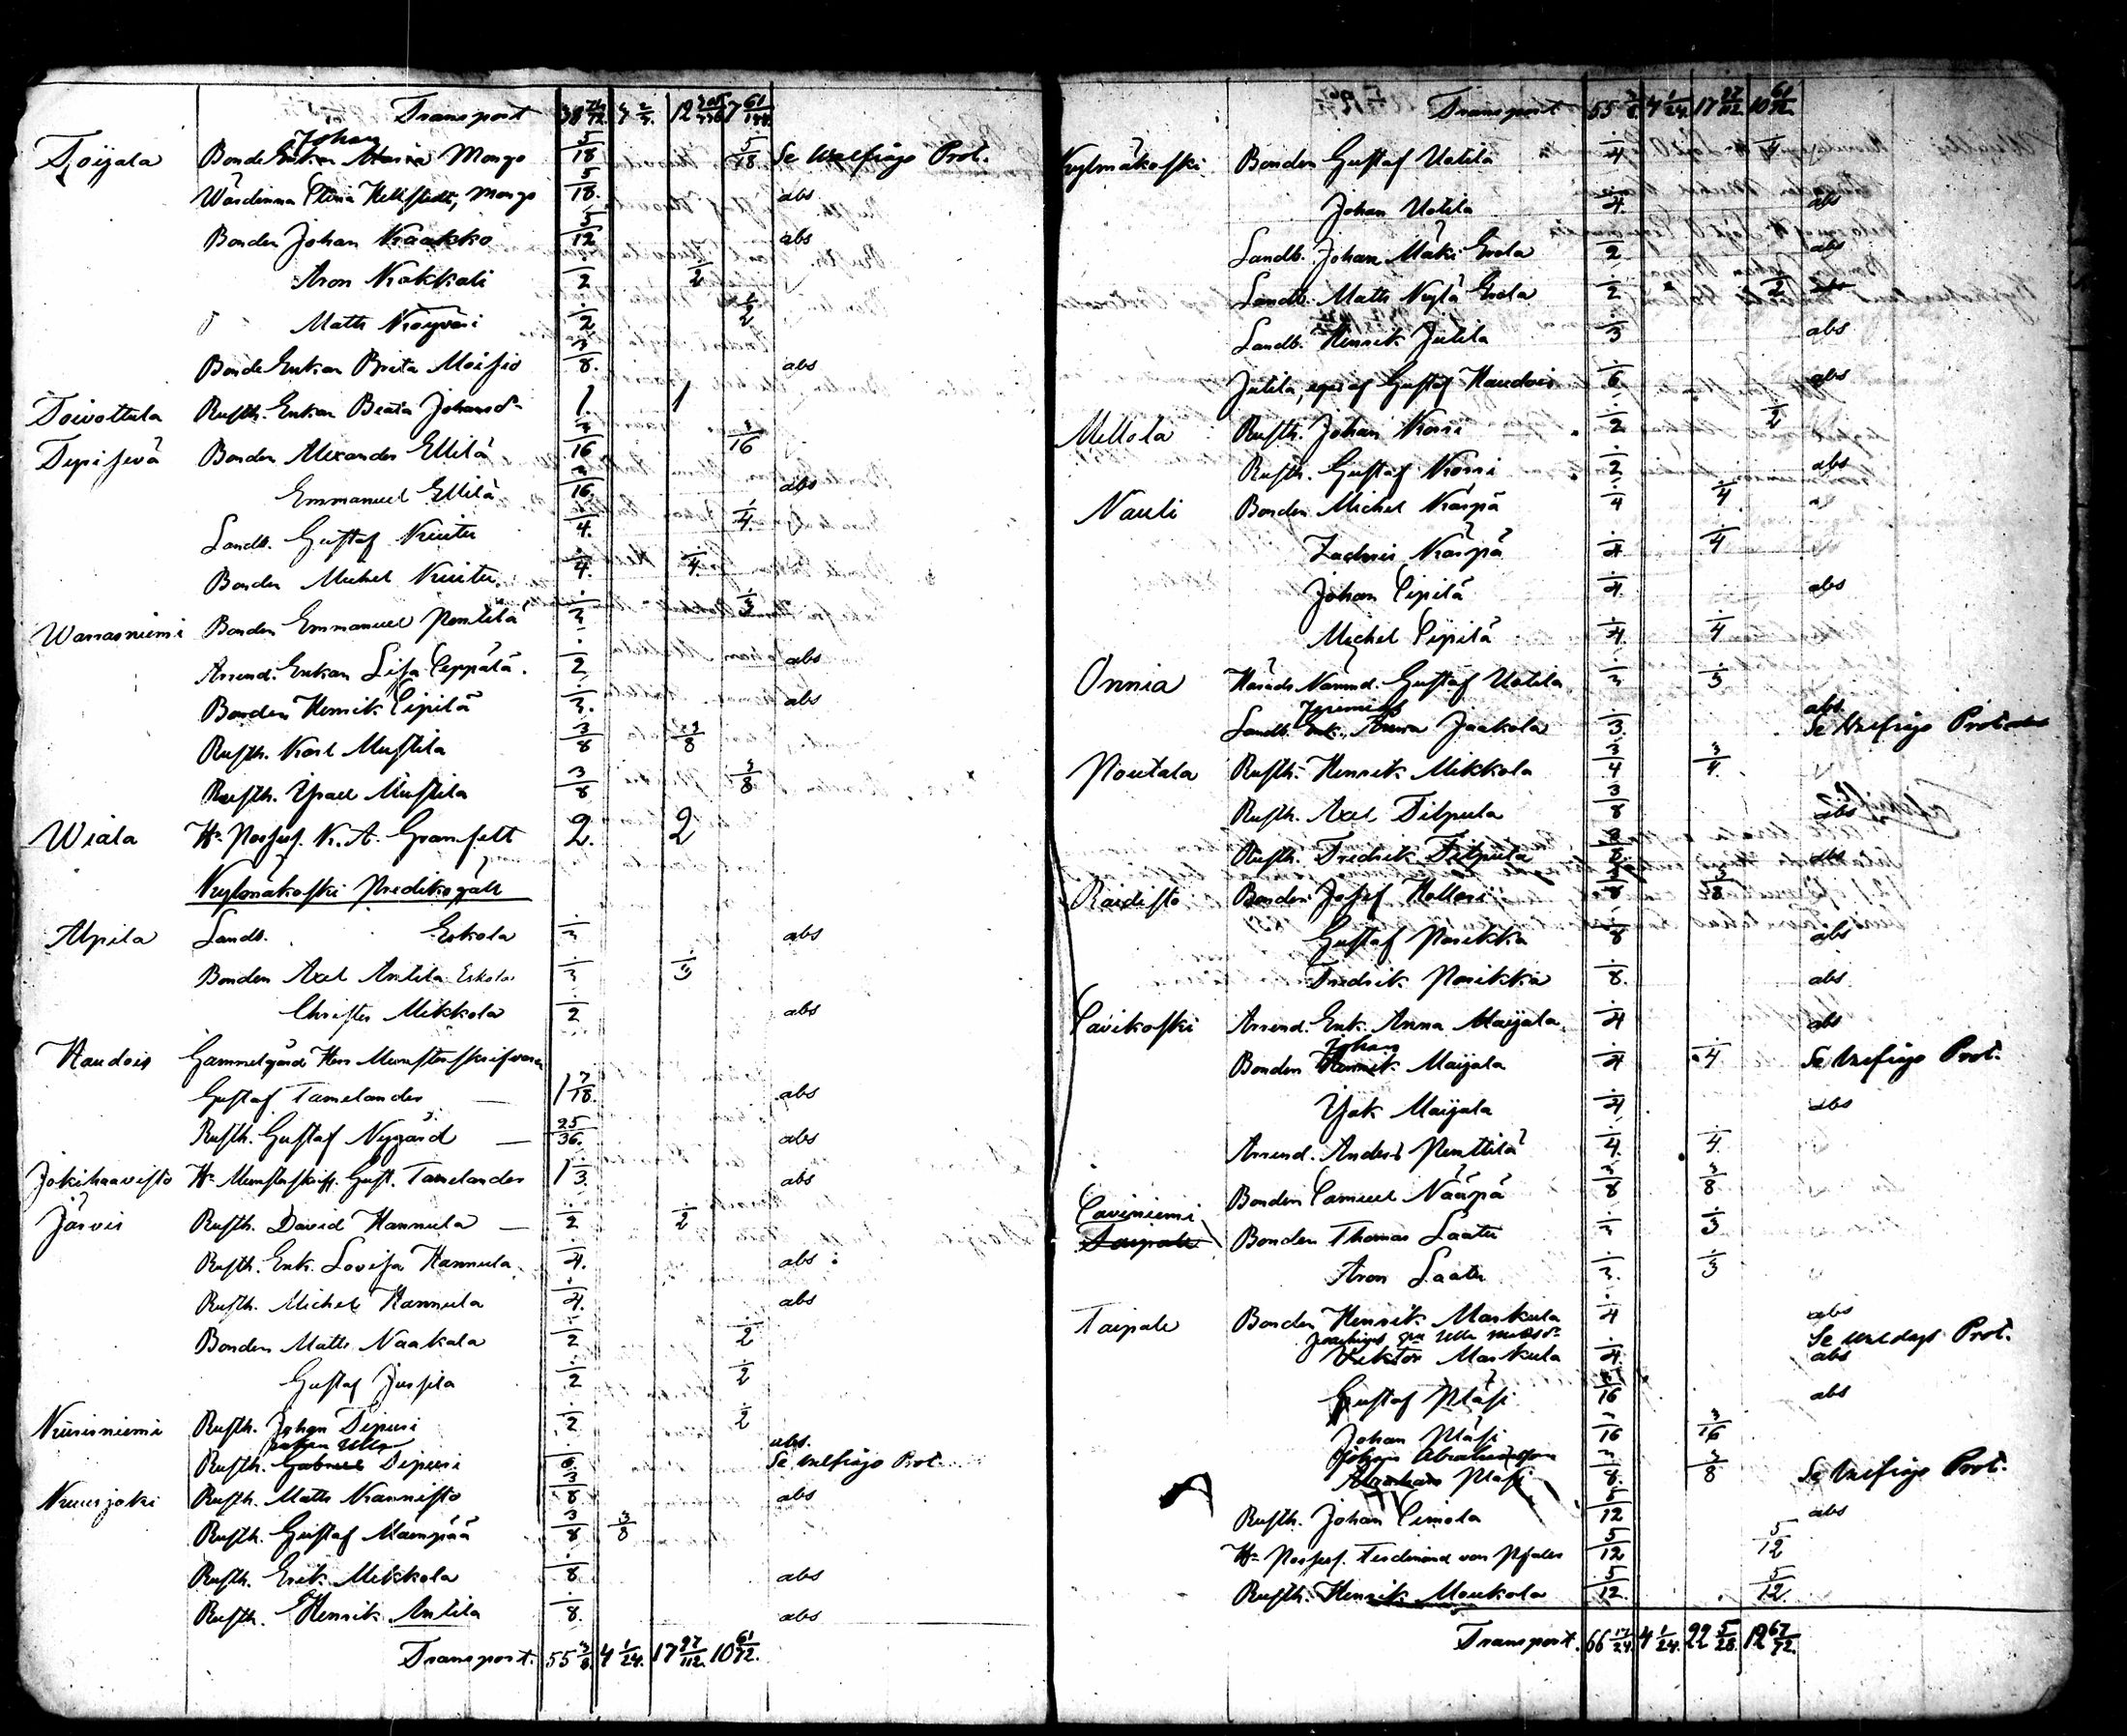 Transport 7 61/144
Toijala Bonde Enkan Maria Mongo Johan 5/18 5/18 Se Utefrågo Prot.
Wärdinnan Hellstedt, Mongo 5/18. abs
Bonden Johan Kaakko 5/12 abs
Aron Kakkali 1/2 1/2
Matts 1/2 1/2
Bonde Enkan Brita Moisio 3/8. abs
Toivottula Rusth. Enkan Beata Johansd. 1. 1
Bonden Alexander Ellilä 3/16 3/16
Emmanuel Ellilä 3/16 abs
Landb. Gustaf 1/4. 1/4.
Bonden Michel 1/4. 1/4.
Warrasniemi Bonden Emmanuel Penttilä 1/3 1/3
Arrend. Enkan Lisa Seppälä. 1/2 abs
Bonden Henrik Sipilä 1/3. abs
Rusth. Karl Mustila 3/8 3/8
Rusth. Israel Mustila 3/8 3/8
Wiala Hr Profess. K. A. Granfelt 2. 2
Kylmäkoski Predikogäll
Alpila Landb. Eskola 1/3 abs
Bonden Axel Antila Eskola 1/3 1/3
Christer Mikkola 1/2 abs
Haudois Gammelgård Herr Munsterskrifvaren
Gustaf Tamelander — 1 7/18. abs
Rusth. Gustaf Nygård — 25/36. abs
Jokihaavisto Hr Munsterskrifv. Gust. Tamelander 1 1/3. abs
Järvis Rusth. David Hannula — 1/2 1/2
Rusth. Enk. Lovisa Hannula 1/4. abs
Rusth. Michel Hannula 1/4. abs
Bonden Matts Naakala 1/2 1/2
Gustaf Jussila 1/2 1/2
Rusth. Johan Sipuri 1/2 1/2
enkan Ulla abs.
Rusth. Gabriel Sipuri 1/6. Se Utefrågo Prot.
Kuurjoki Rusth. Matts Kannisto 3/8 abs
Rusth. Gustaf Manspää 3/8 3/8
Rusth. Erik Mikkola 1/8 abs
Rusth. Henrik Antila 1/8. abs
Transport. 55 3/8. 4 1/24. 17 27/112. 10 61/72.
Transport 55 3/8. 4 1/24. 17 27/112. 10 61/72.
Kylmäkoski Bonden Gustaf Uotila 1/4 1/4
Johan Uotila 1/4. abs
Landb. Johan Mäki Erola 1/2 abs
Landb. Matts Kylä Erola 1/2 1/2 abs
Landb. Henrik Jutila 1/3 abs
Jutila, eges af Gustaf Haudois 1/6. abs
Mellola Rusth. Johan Korri 1/2 1/2
Rusth. Gustaf Korri 1/2 abs
Nauli Bonden Michel Kärpä 1/4 1/4.
Kärpä 1/4. 1/4
Johan Sipilä 1/4. abs
Michel Sipilä 1/4 1/4
Onnia Härads Nämnd. Gustaf Uotila 1/3 1/3
Jeremias abs.
Landb. Enk. Anna Jaakola 1/3. Se Utefrågo Prot. abs
Poutala Rusth. Henrik Mikkola 3/4 3/4.
Rusth. Axel Tilpula 3/8 abs
Rusth. Fredrik Tilpula 3/8. abs
Raidisto Bonden Josef Hollari
Gustaf Porikka 1/8 abs
Fredrik Porikka 1/8. abs
Savikoski Arrend. Enk. Anna Maijala 1/4 abs
Johan
Bonden Henrik Maijala 1/4 1/4. Se Utefrågo Prot.
Isak Maijala 1/4 abs
Arrend. Anders Penttilä 1/4. 1/4.
Bonden Samuel Nääpä 3/8 3/8
Saviniemi
Taipale Bonden Thomas Laatu 1/3 1/3
Aron Laatu 1/3. 1/3
Taipale Bonden Henrik Markula 1/4 abs
Ulla Se Prot.
Viktor Markula 1/4. abs
Gustaf Pläsi 3/16 abs
Johan Pläsi 3/16 3/16
Johan Abrahamsson
Abraham Pläsi 3/8. 3/8 Se Utefrågo Prot.
Rusth. Johan Simola 5/12 abs
Hr Profess. Ferdinand von Pfaler 5/12 5/12
Rusth. Henrik Moukola 5/12. 5/12.
Transport. 66 17/24. 4 1/24. 22 5/28. 12 67/72.